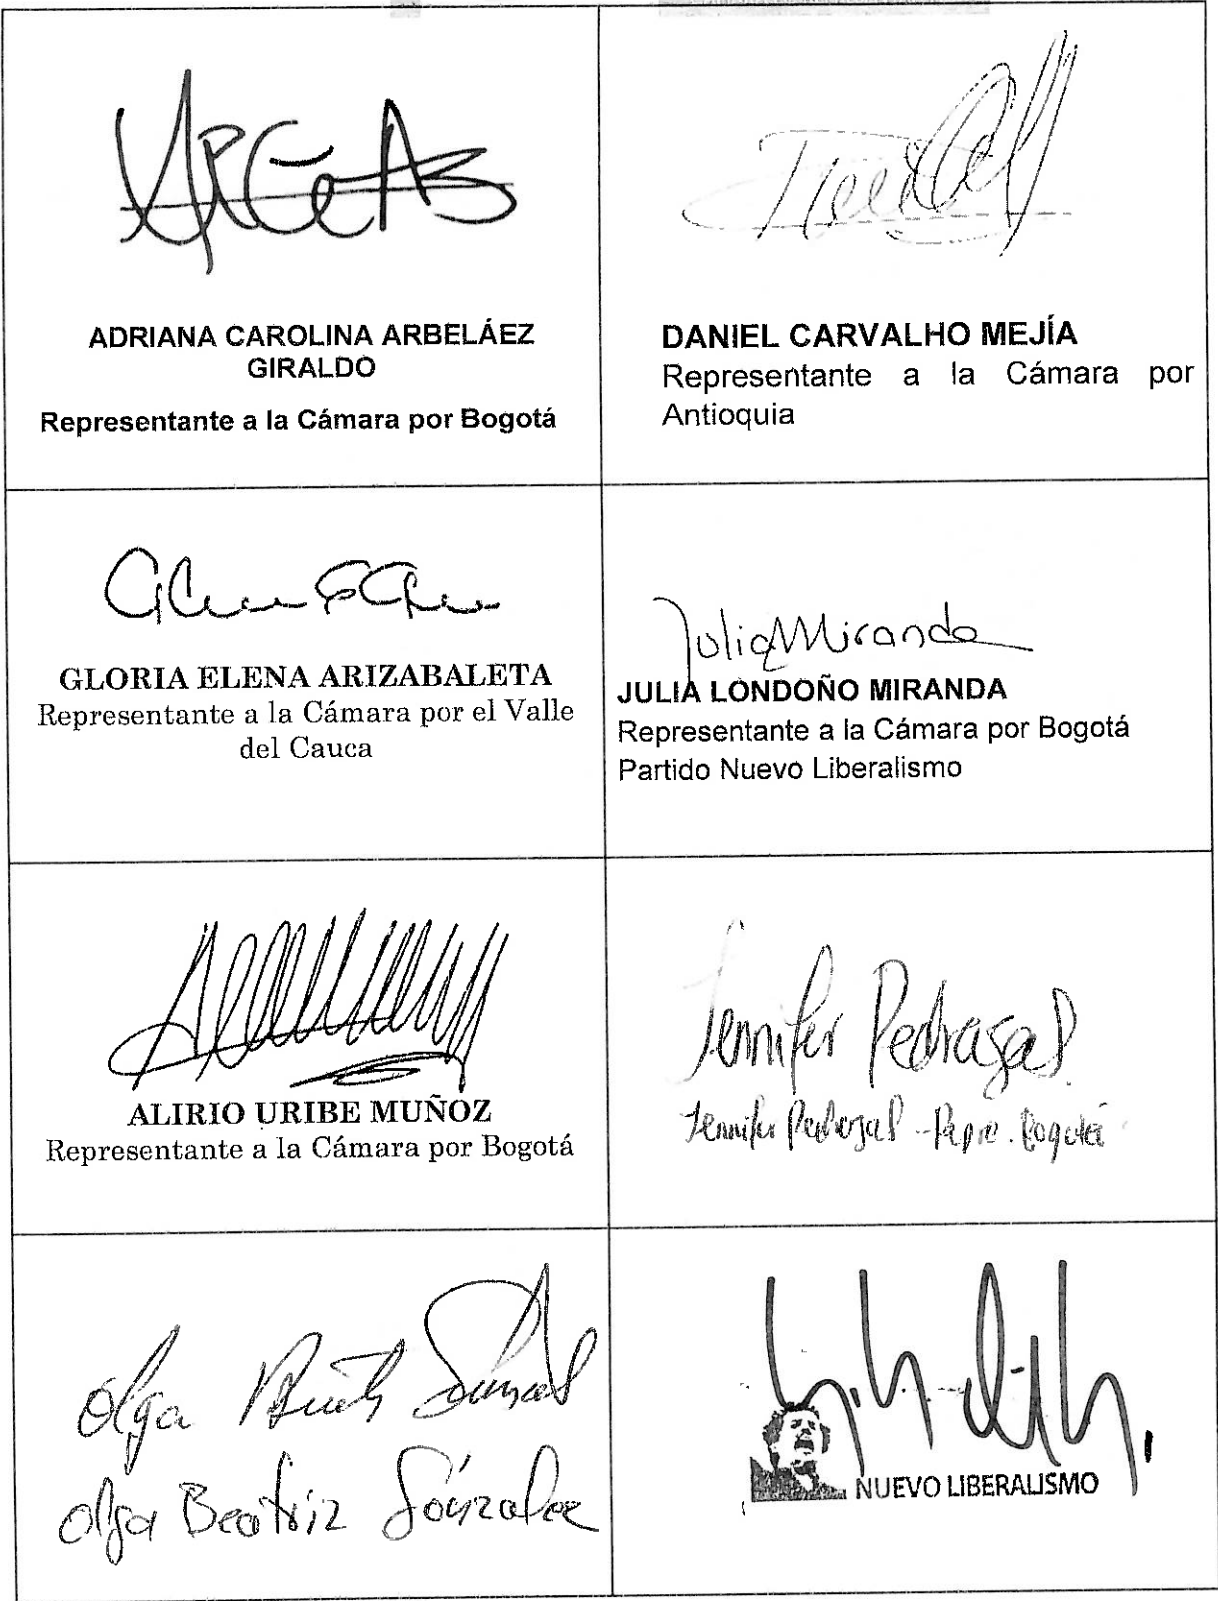 ADRIANA CAROLINA ARBELÁEZ
GIRALDO
Representante a la Cámara por Bogotá
DANIEL CARVALHO MEJÍA
Representante a la Cámara por
Antioquia
GLORIA ELENA ARIZABALETA
Representante a la Cámara por el Valle
del Cauca
Julia Miranda
JULIA LONDOÑO MIRANDA
Representante a la Cámara por Bogotá
Partido Nuevo Liberalismo
ALIRIO URIBE MUÑOZ
Representante a la Cámara por Bogotá
Jennifer Pedrazal
Jennifer Bogotá
Olga
Olga Beatriz González
NUEVO LIBERALISMO